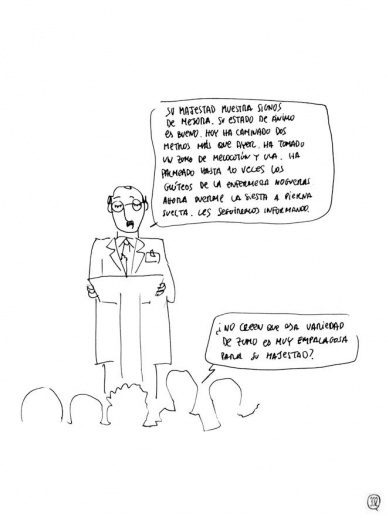 SU MAJESTAD MUESTRA SIGNOS
DE MEJORA. SU ESTADO DE ÁNIMO
ES BUENO. HOY HA CAMINADO DOS
METROS MÁS QUE AYER. HA TOMADO
UN ZUMO DE MELOCOTÓN Y UVA. HA
PALMEADO HASTA 10 VECES LOS
GLÚTEOS DE LA ENFERMERA NOGUERAS.
AHORA DUERME LA SIESTA A PIERNA
SUELTA. LES SEGUIREMOS INFORMANDO.
¿NO CREEN QUE ESA VARIEDAD
DE ZUMO ES MUY EMPALAGOSA
PARA SU MAJESTAD?